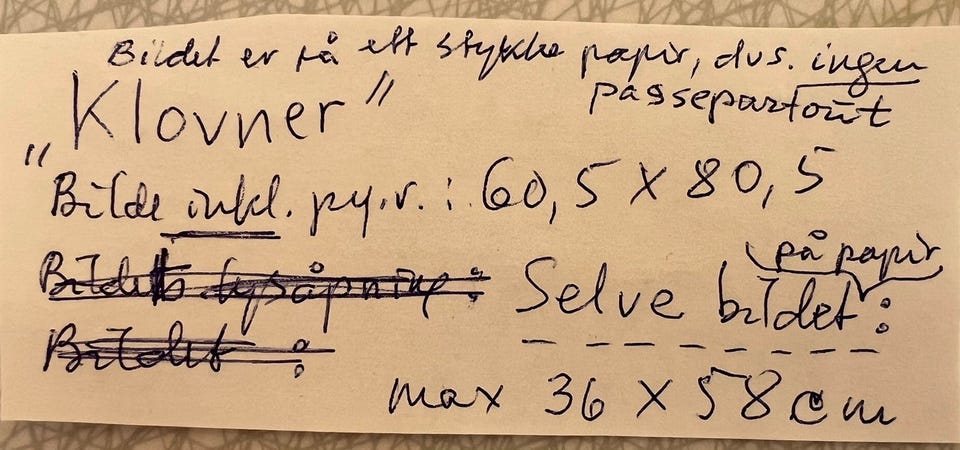 Bildet er på ett stykke papir, dvs. ingen
passepartout
"Klovner"
Bilde inkl. py.r.: 60,5 x 80,5
Bildets lysåpning:
på papir
Selve bildet:
Bildet :
max 36 x 58 cm